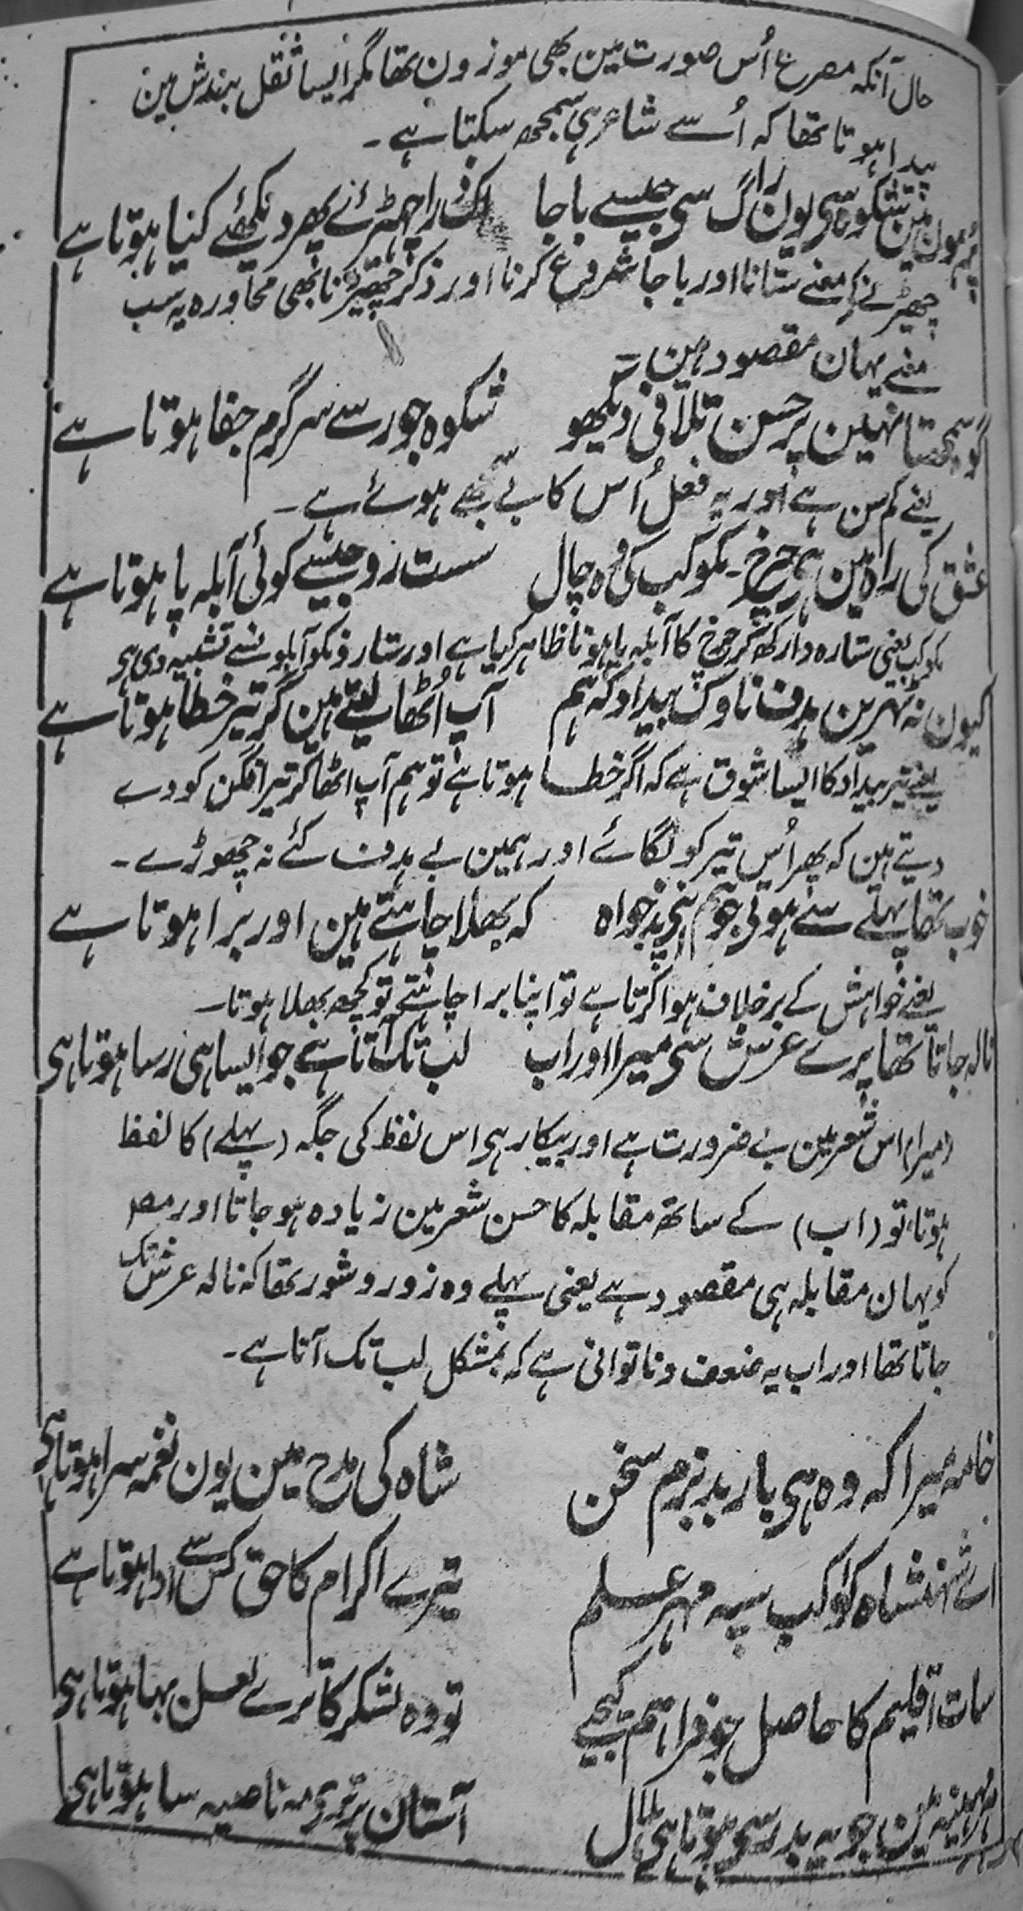 حال آنکہ مصرع اُس صورت مین بھی موزون تھا مگر ایسا ثقل بندش مین
پیدا ہوتا تھا کہ اُسے شاعر ہی سمجھ سکتا ہے۔
پُر ہون مین شکوہ سی یون راگ سی جیسے باجا اک ذرا چھیڑئے پھر دیکھئے کیا ہوتا ہے
چھیڑنے کے معنے ستانا اور باجا شروع کرنا اور ذکر چھیڑنا بھی محاورہ یہ سب
معنے یہان مقصود ہین۔
گو سمجھتا نہین پر حسن تلافی دیکھو شکوہ جور سے سرگرم جفا ہوتا ہے
یعنے کم سن ہے اور یہ فعل اُس کا بے سمجھے ہوئے ہے۔
عشق کی راہ مین ہی چرخ مکوکب کی وہ چال سست رو جیسے کوئی آبلہ پا ہوتا ہے
مکوکب یعنی ستارہ دار کھکر چرخ کا آبلہ پا ہونا ظاہر کیا ہے اور ستارونکو آبلونسے تشبیہ دی ہی
کیون نہ ٹھہرین ہدف ناوک بیداد کہ ہم آپ اُٹھا لیتے ہین گر تیر خطا ہوتا ہے
یعنے تیر بیداد کا ایسا شوق ہے کہ اگر خطا ہوتا ہے تو ہم آپ اٹھا کر تیر افگن کو دے
دیتے ہین کہ پھر اُس تیر کو لگائے اور ہمین بے ہدف کئے نہ چھوڑے۔
خوب تھا پہلے سے ہوتے جو ہم اپنے بد خواہ کہ بھلا چاہتے ہین اور برا ہوتا ہے
یعنے خواہش کے برخلاف ہوا کرتا ہے تو اپنا برا چاہتے تو کچھ بھلا ہوتا۔
نالہ جاتا تھا پرے عرش سی میرا اور اب لب تک آتا ہے جو ایسا ہی رسا ہوتا ہی
(میرا) اس شعر مین بے ضرورت ہے اور بیکار ہی اس لفظ کی جگہ (پہلے) کا لفظ
ہوتا، تو (اب) کے ساتھ مقابلہ کا حسن شعر مین زیادہ ہو جاتا اور مصر
کو یہان مقابلہ ہی مقصود ہے یعنی پہلے وہ زور و شور تھا کہ نالہ عرش تک
جاتا تھا اور اب یہ ضعف و ناتوانی ہے کہ بمشکل لب تک آتا ہے۔
خامہ میرا کہ وہ ہی باربد بزم سخن شاہ کی مدح مین یون نغمہ سرا ہوتا ہی
اے شہنشاہ کواکب سپہ مہر علم تیرے اکرام کا حق کس سے ادا ہوتا ہے
سات اقلیم کا حاصل جو فراہم کیجے تو وہ لشکر کا ترے لعل بہا ہوتا ہی
ہر مہینہ مین جو یہ بدر سی ہوتا ہی ہلال آستان پر ترے مہ ناصیہ سا ہوتا ہی